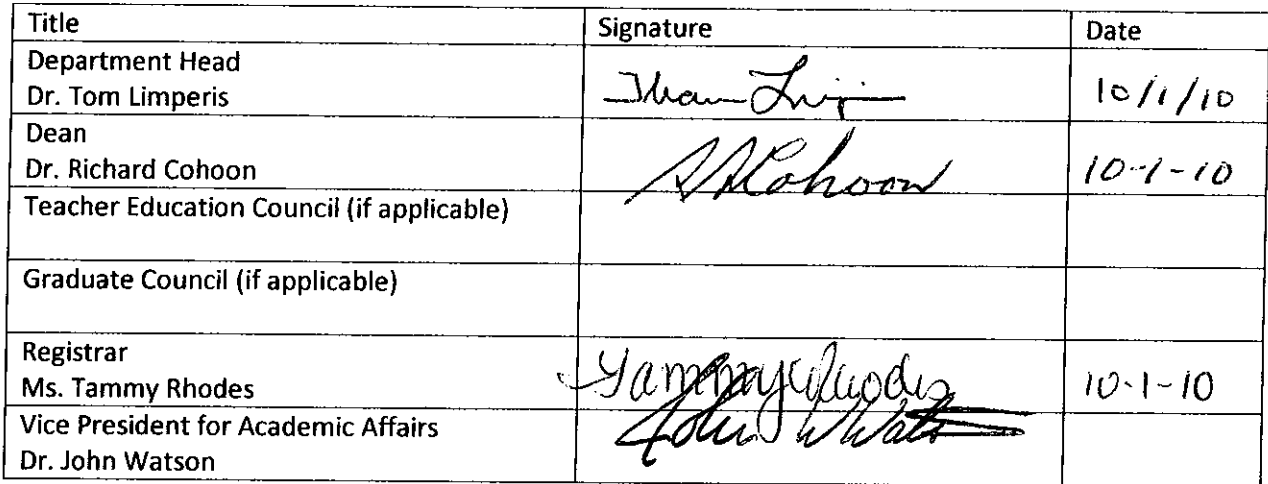 Title Signature Date
Department Head
Dr. Tom Limperis 10/1/10
Dean
Dr. Richard Cohoon RACohoon 10-1-10
Teacher Education Council (if applicable)
Graduate Council (if applicable)
Registrar
Ms. Tammy Rhodes Tammy Rhodes 10-1-10
Vice President for Academic Affairs John W Watson
Dr. John Watson